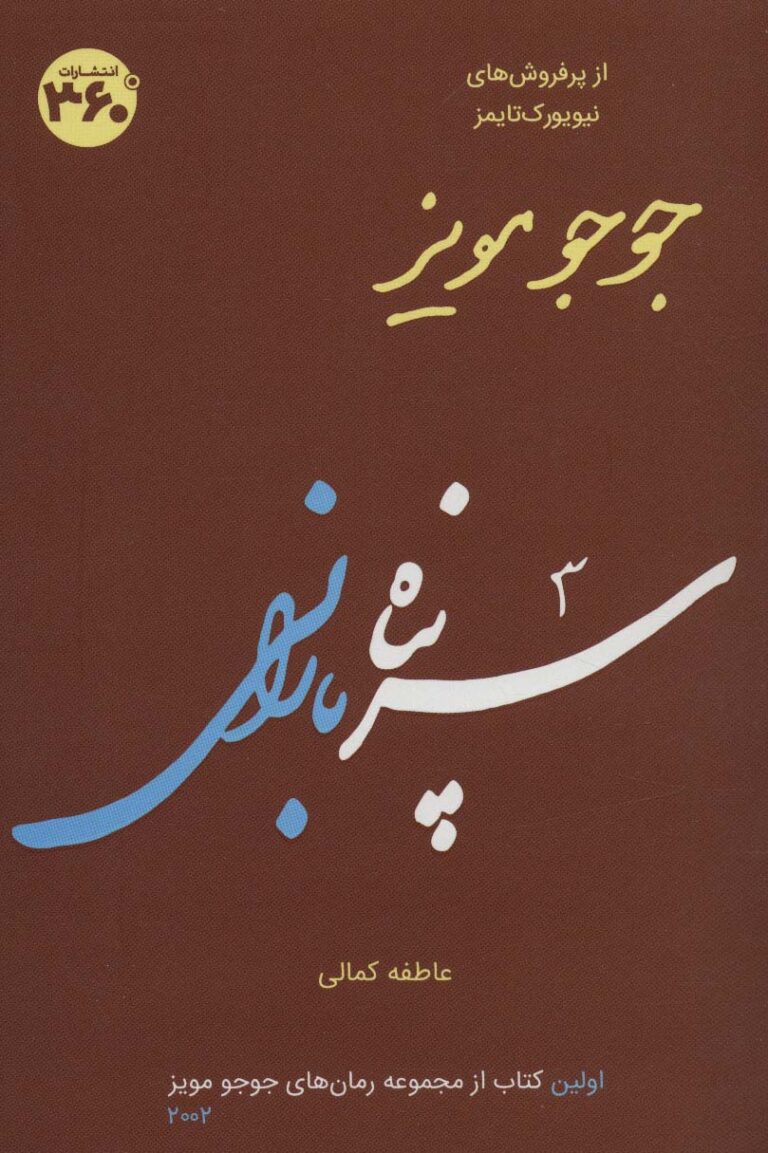 انتشارات
۳۶۰°
از پرفروش‌های
نیویورک‌تایمز
جوجو مویز
سرپناه بارانی
عاطفه کمالی
اولین کتاب از مجموعه رمان‌های جوجو مویز
۲۰۰۲